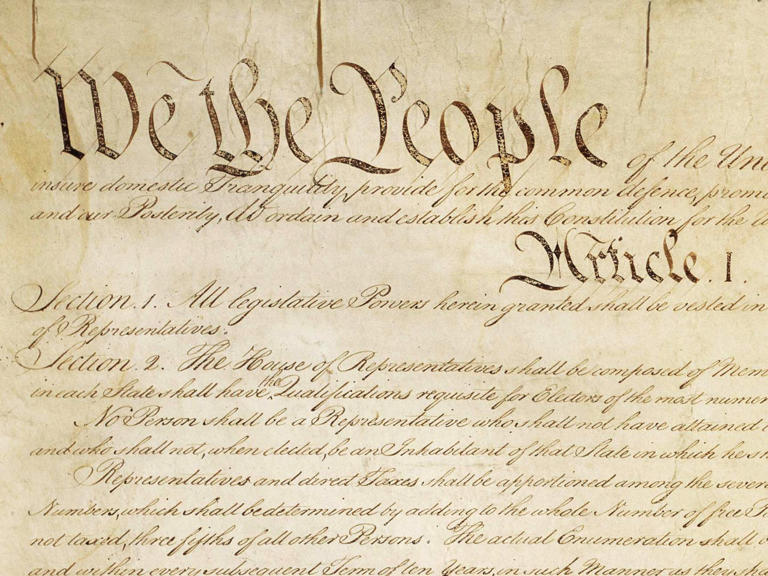 We the People of the Uni
insure domestic Tranquility, provide for the common defence, promo
and our Posterity, do ordain and establish this Constitution for the
Article. I.
Section. 1. All legislative Powers herein granted shall be vested in
of Representatives.
Section. 2. The House of Representatives shall be composed of Mem
in each State shall have the Qualifications requisite for Electors of the most numer
No Person shall be a Representative who shall not have attained
and who shall not, when elected, be an Inhabitant of that State in which he s
Representatives and direct Taxes shall be apportioned among the sever
Numbers, which shall be determined by adding to the whole Number of free P
not taxed, three fifths of all other Persons. The actual Enumeration shall b
and within every subsequent Term of ten Years, in such Manner as they sha